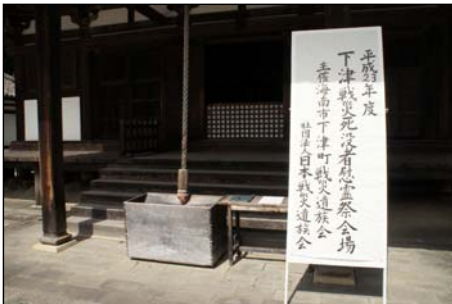 平成23年度
下津戦災死没者慰霊祭会場
主催海南市下津町戦災遺族会
社団法人日本戦災遺族会